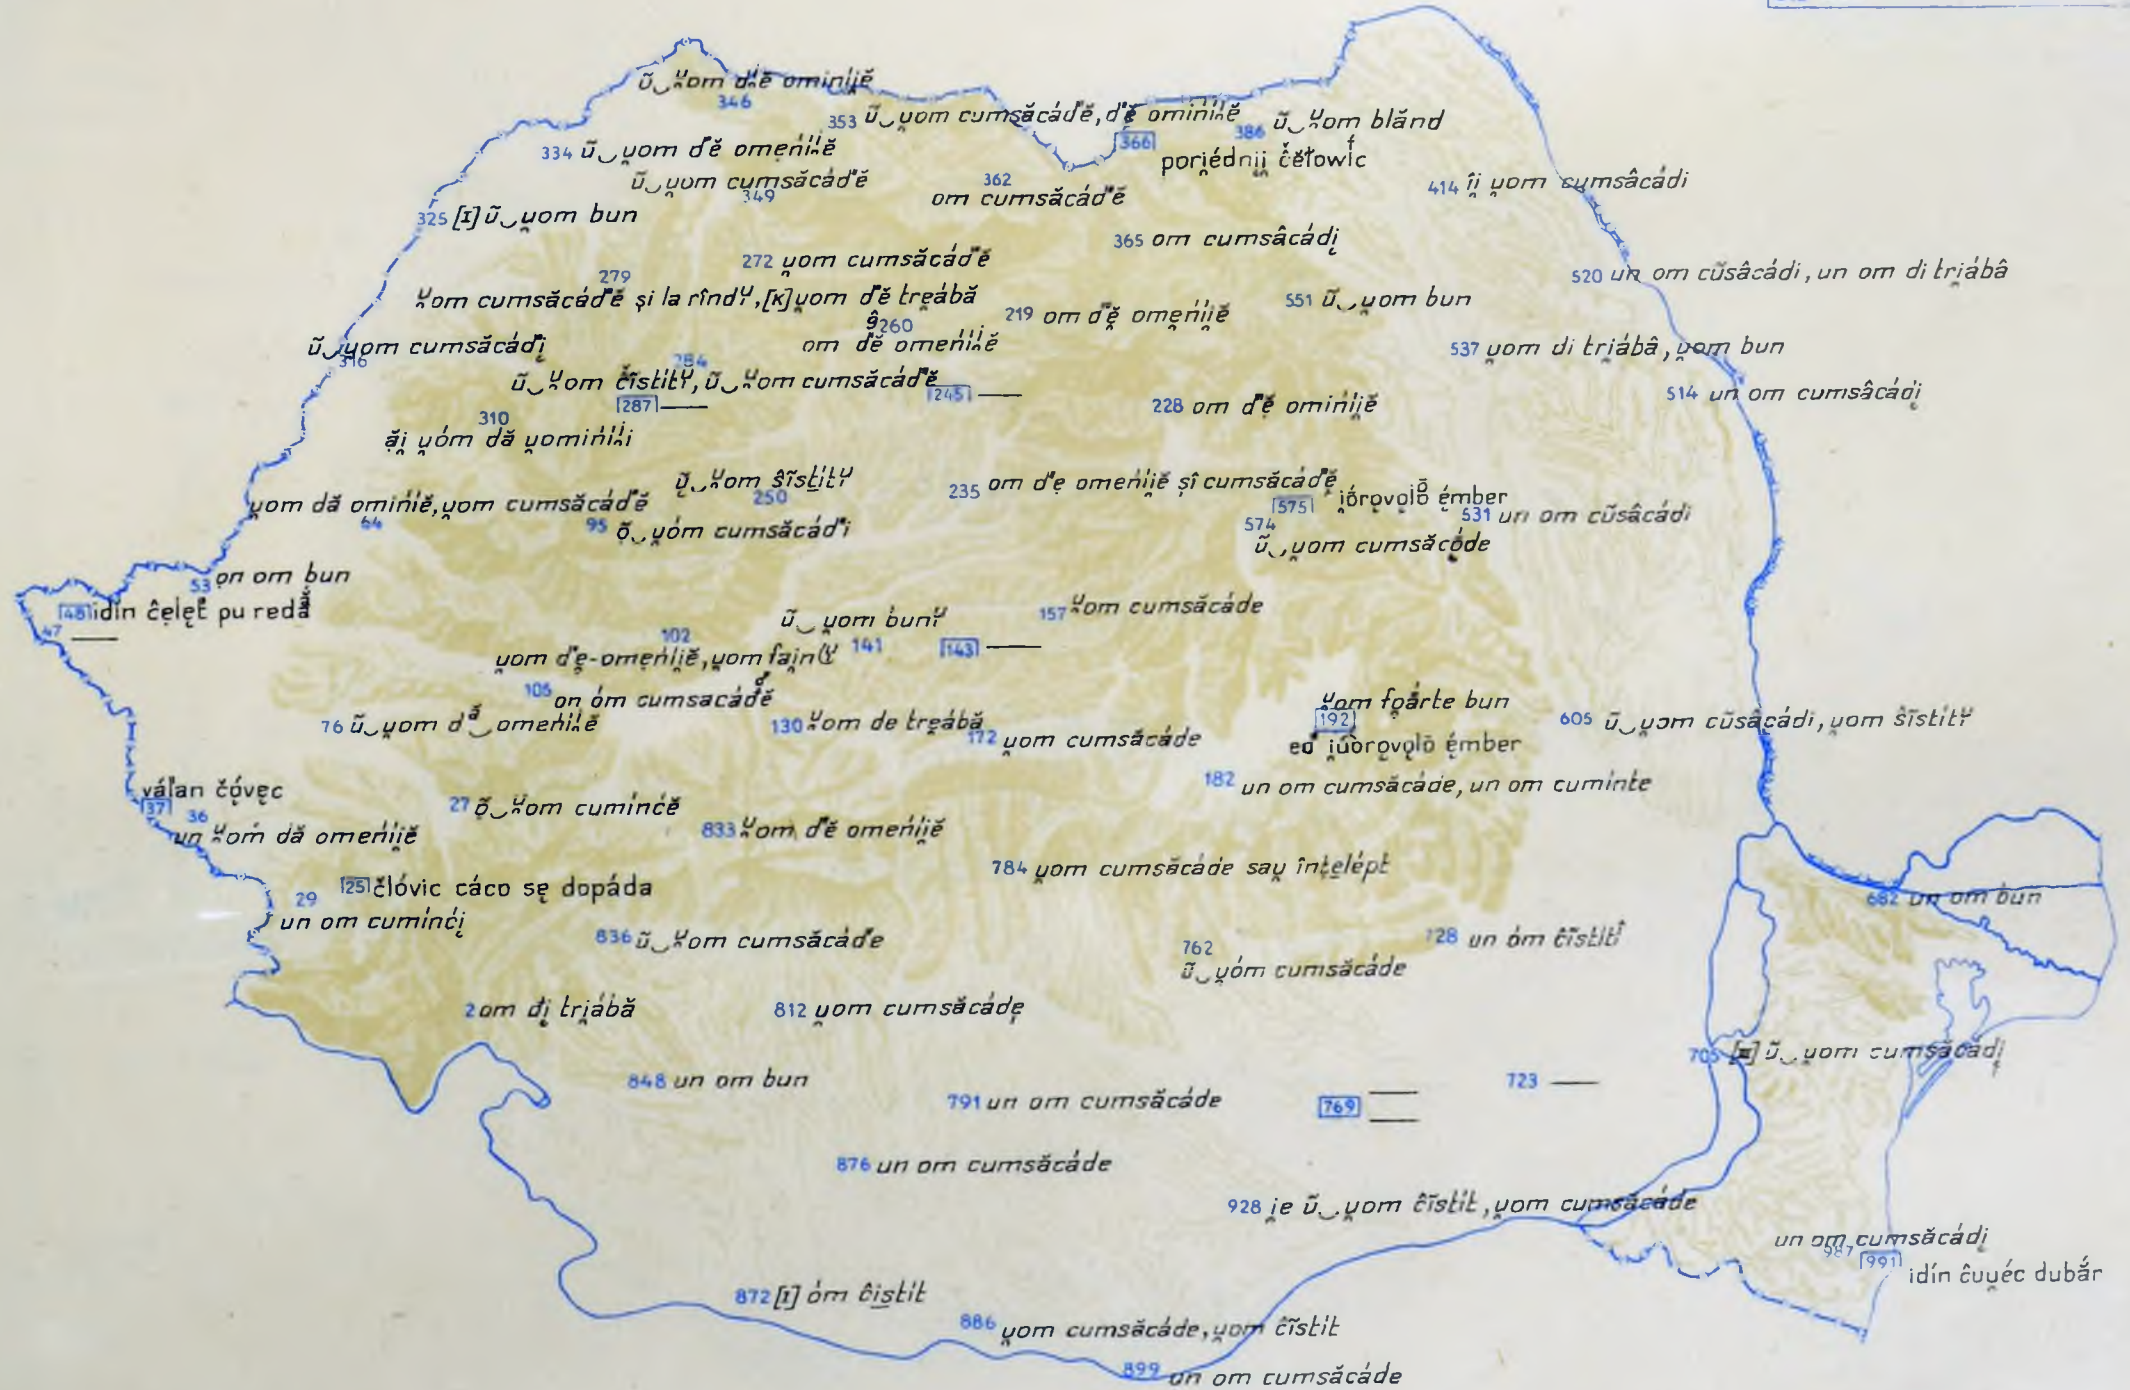 ũ‿ u̯om d'ĕ omini̯ĕ
346
353 ũ‿u̯om cumsăcád'ĕ, d'ĕ omińíi̯ĕ
386 ũ‿u̯om blănd
366
pori̯édnii̯ čĕłowíc
334 ũ‿u̯om d'ĕ omeńíi̯ĕ
ũ‿u̯om cumsăcád'ĕ
349
362
om cumsăcád'ĕ
414 îi̯ u̯om cumsâcádi
325 [I] ũ‿u̯om bun
365 om cumsâcádi̯
272 u̯om cumsăcád'ĕ
520 un om cũsâcádi, un om di tri̯ábâ
279
u̯om cumsăcád'ĕ și la rîndᵘ, [K] u̯om d'ĕ tre̯ábă
551 ũ‿u̯om bun
219 om d'ĕ omeńíi̯ĕ
260
om d'ĕ omeńíi̯ĕ
ũ‿u̯om cumsăcád'i̯
316
537 u̯om di tri̯ábâ, u̯om bun
284
ũ‿u̯om ĉĩstítᵘ, ũ‿u̯om cumsăcád'ĕ
245 —
287 —
514 un om cumsâcádi̯
228 om d'ĕ omińíi̯ĕ
310
ăi̯ u̯óm dă u̯omińíi̯i
ũ‿u̯om ŝĩstítᵘ
250
235 om d'e omeńíi̯ĕ șî cumsăcád'ĕ
575 i̯órovolō̄ émber
u̯om dă omińíĕ, u̯om cumsăcád'ĕ
64
95 õ‿u̯óm cumsăcád'i
531 un om cũsâcádi
574
ũ‿u̯om cumsăcóde
53 on om bun
48 idín ĉelet pu redă
47 —
157 u̯om cumsăcáde
ũ‿u̯om búnᵘ
141
143 —
102
u̯om d'e-omeńíi̯ĕ, u̯om fai̯nᵘ
105 on óm cumsacád'ĕ
76 ũ‿u̯om dă‿omeńíi̯ĕ
130 u̯om de tre̯ábă
172 u̯om cumsăcáde
u̯om fo̯árte bun
192
eǎ i̯úòrovolō émber
605 ũ‿u̯om cũsăcádi, u̯om ŝĩstítᵘ
182 un om cumsăcáde, un om cumínte
válan čóvec
37
36
un u̯om dă omeńíi̯ĕ
27 õ‿u̯om cumínćĕ
833 u̯om d'ĕ omeńíi̯ĕ
784 u̯om cumsăcáde sau̯ înțelépt
25 člóvic cáco se dopáda
29
un om cumínći̯
682 un om bun
836 ũ‿u̯om cumsăcáde
728 un óm ĉĩstítⁱ
762
ũ‿u̯óm cumsăcáde
2 om di̯ tri̯ábă
812 u̯om cumsăcáde
705 [II] ũ‿u̯om cumsăcádi̯
848 un om bun
723 —
791 un om cumsăcáde
769 —
876 un om cumsăcáde
928 i̯e ũ‿u̯om ĉĩstít, u̯om cumsăcáde
un om cumsăcádi̯
987
991
idín ĉuu̯éc dubắr
872 [I] óm ĉistít
886 u̯om cumsăcáde, u̯om ĉĩstít
899 un om cumsăcáde